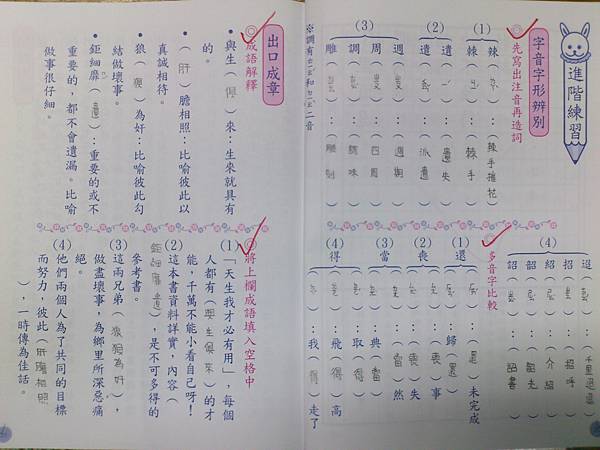 進階練習
字音字形辨別
◎先寫出注音再造詞
(1)
辣:(辣手摧花)
棘:(棘手)
(2)
遺:(遺失)
遣:(派遣)
(3)
週:(週期)
周:(四周)
調:(調味)
雕:(雕刻)
※調有
二音
(4)
迢:(千里迢迢)
招:(招呼)
紹:(介紹)
韶:(韶光)
詔:(詔書)
◎多音字比較
(1)還
:(還)未完成
:歸(還)
(2)喪
:(喪)事
:(喪)失
(3)當
:(當)然
:典(當)
(4)得
:取(得)
:飛(得)高
:我(得)走了
出口成章
◎成語解釋
•與生(俱)來:生來就具有
的。
•(肝)膽相照:比喻彼此以
真誠相待。
•狼(狽)為奸:比喻彼此勾
結做壞事。
•鉅細靡(遺):重要的或不
重要的,都不會遺漏。比喻
做事很仔細。
◎將上欄成語填入空格中
(1)「天生我才必有用」,每個
人都有(與生俱來)的才
能,千萬不能小看自己呀!
(2)這本書資料詳實,內容(
鉅細靡遺),是不可多得的
參考書。
(3)這兩兄弟(狼狽為奸),
做盡壞事,為鄉里所深惡痛
絕。
(4)他們兩個人為了共同的目標
而努力,彼此(肝膽相照
),一時傳為佳話。